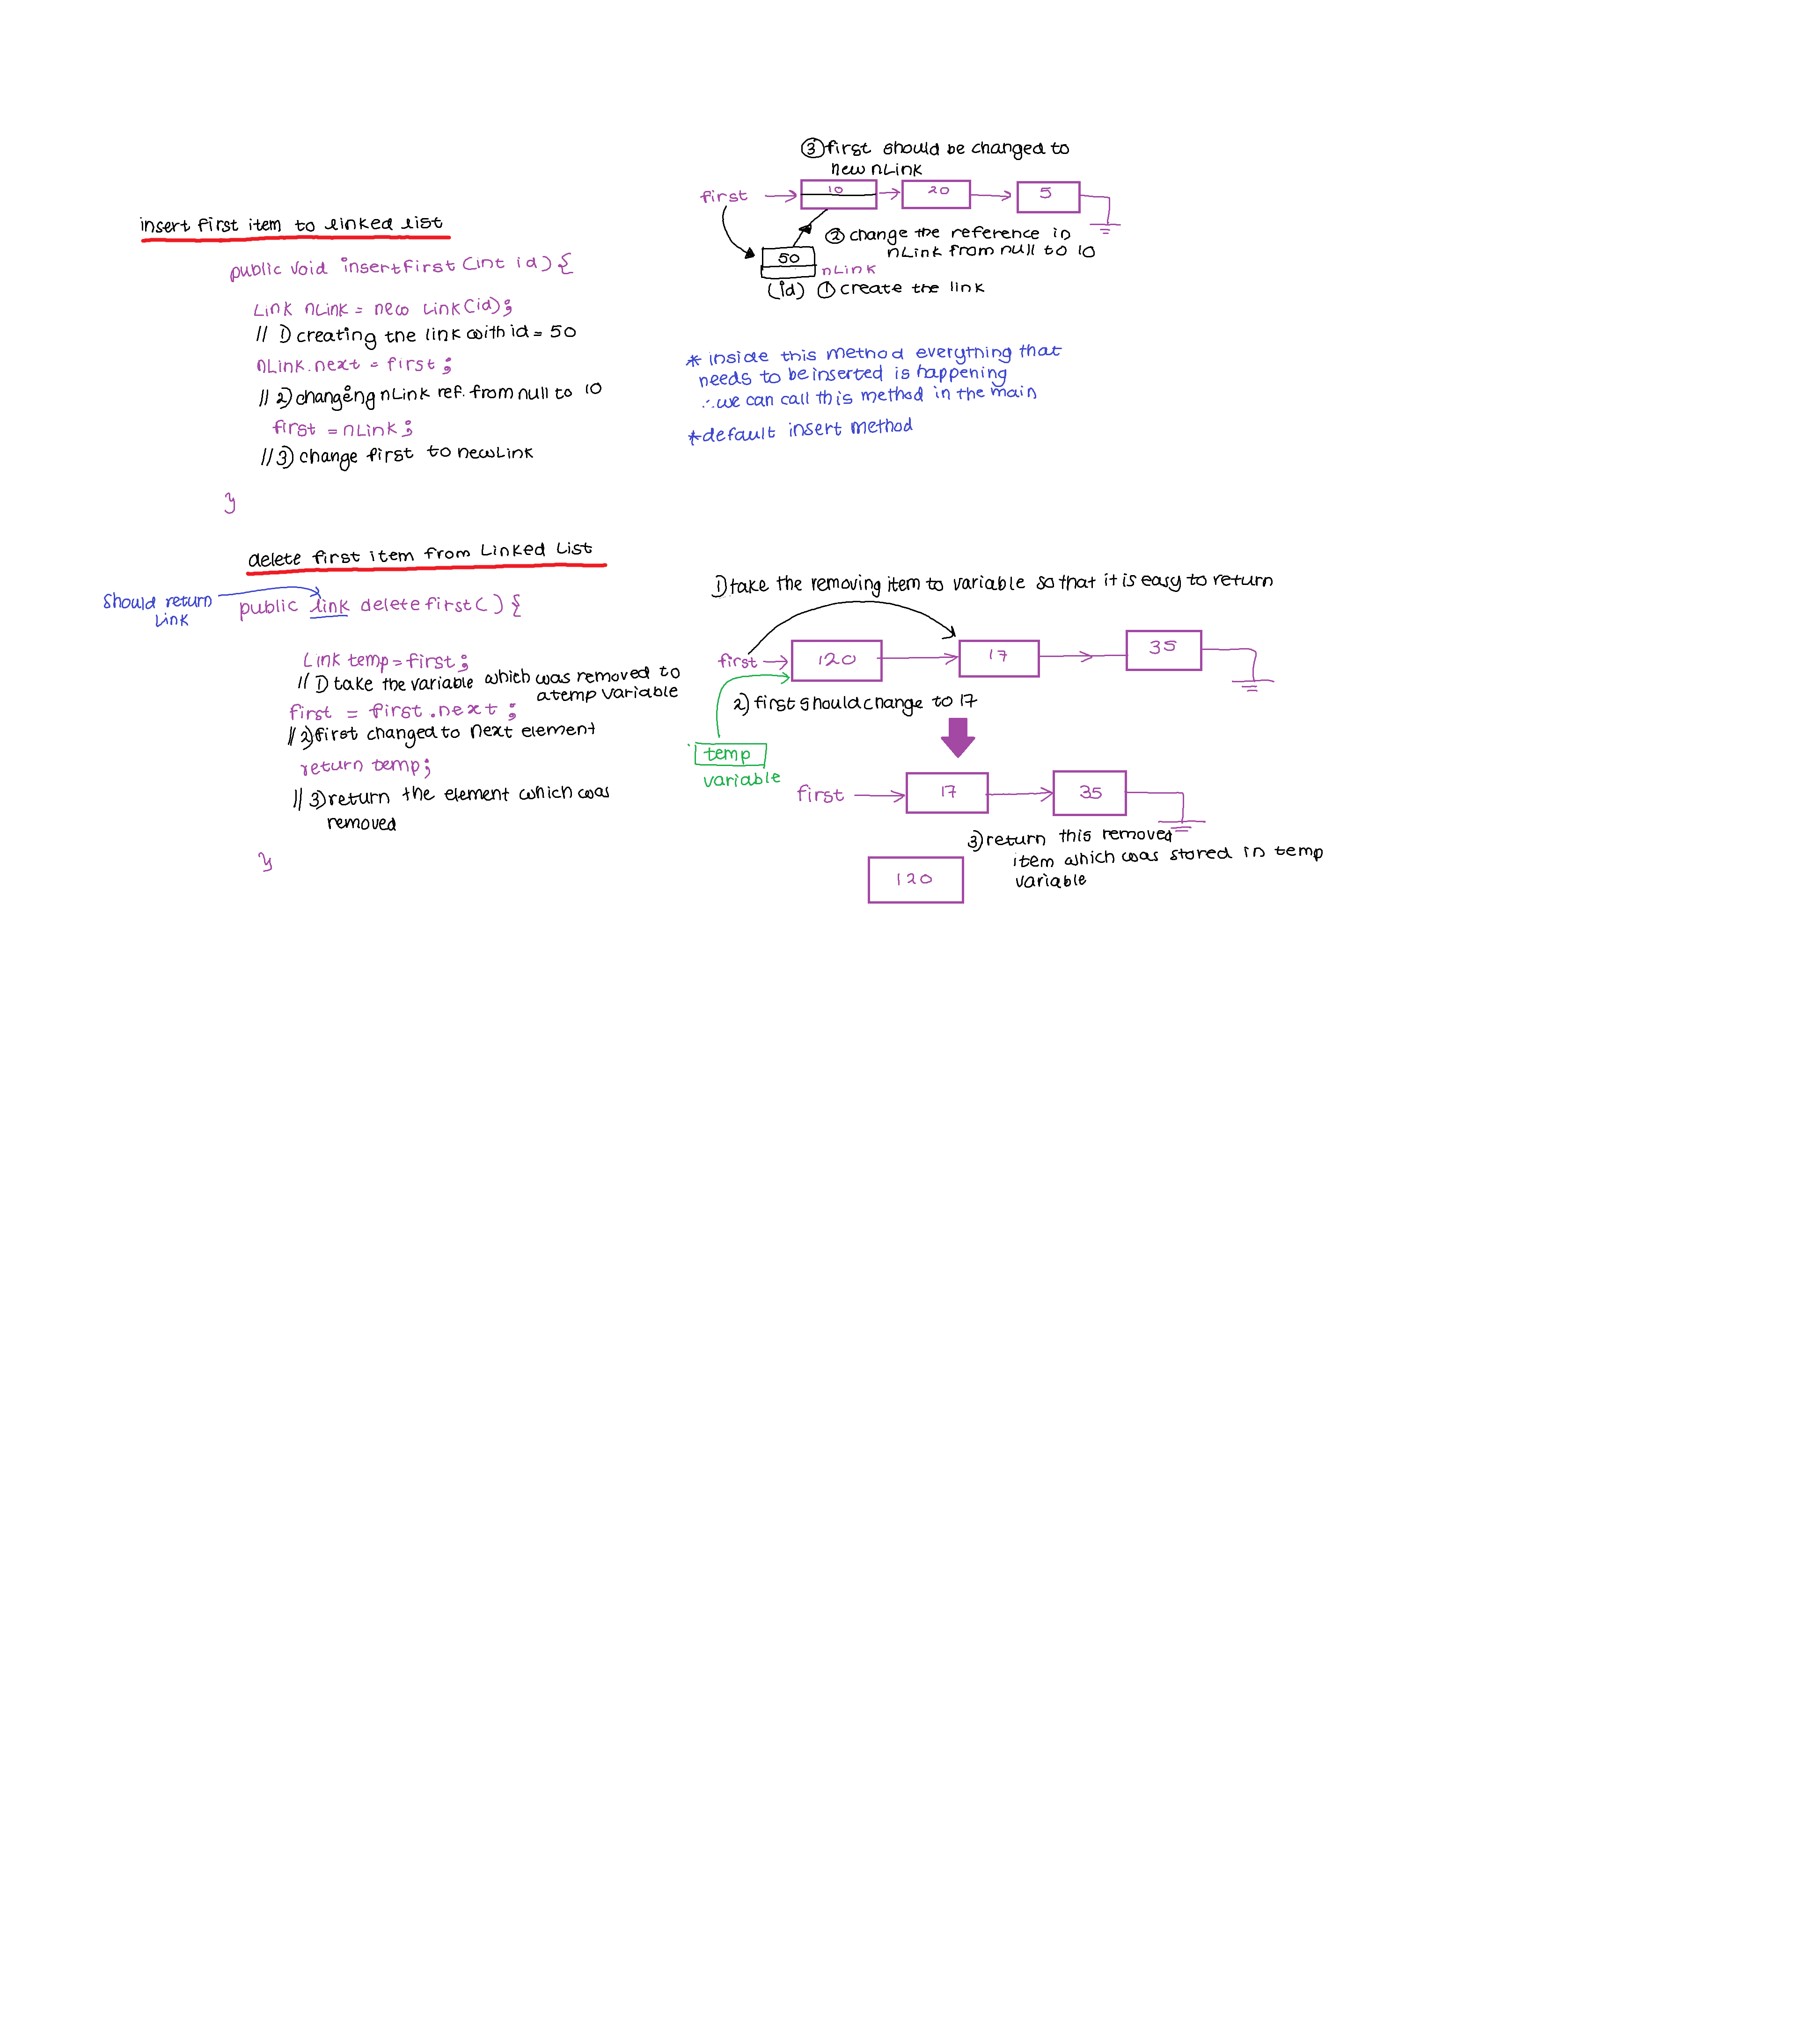 insert first item to linked list
public void insertFirst(int id){
Link nLink = new Link(id);
// 1) creating the link with id = 50
nLink.next = first;
// 2) changeng nLink ref. from null to 10
first = nLink;
// 3) change first to newLink
}
③ first should be changed to
new nLink
first
10
20
5
② change the reference in
nLink from null to 10
50
nLink
(id) ① create the link
* inside this method everything that
needs to be inserted is happening
∴ we can call this method in the main
* default insert method
delete first item from Linked List
should return
Link
public link deletefirst( ) {
Link temp = first;
// 1) take the variable which was removed to
a temp variable
first = first.next;
// 2) first changed to next element
return temp;
// 3) return the element which was
removed
}
1) take the removing item to variable so that it is easy to return
first
120
17
35
2) first should change to 17
temp
variable
first
17
35
3) return this removed
item which was stored in temp
variable
120